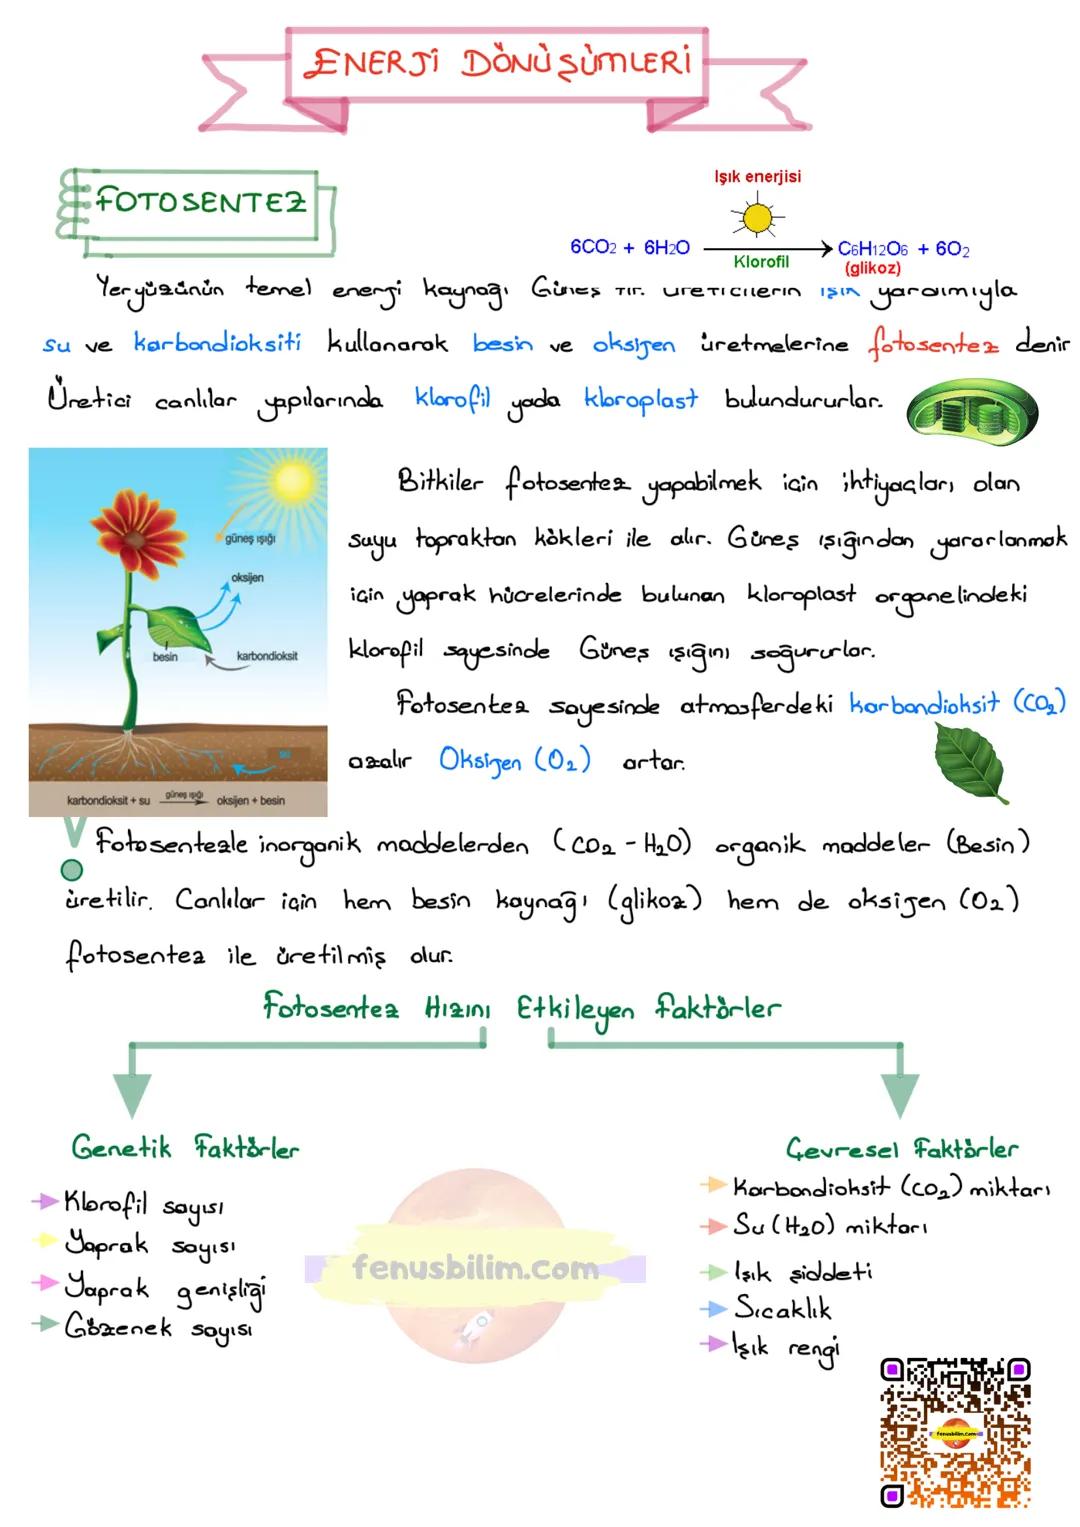 ENERJİ DÖNÜŞÜMLERİ
FOTOSENTEZ
Işık enerjisi
6CO2 + 6H2O
Klorofil
C6H12O6 + 6O2
(glikoz)
Yeryüzünün temel enerji kaynağı Güneş'tir. Üreticilerin ışık yardımıyla
su ve karbondioksiti kullanarak besin ve oksijen üretmelerine fotosentez denir
Üretici canlılar yapılarında klorofil yada kloroplast bulundururlar.
güneş ışığı
oksijen
besin
karbondioksit
su
karbondioksit + su güneş ışığı oksijen + besin
Bitkiler fotosentez yapabilmek için ihtiyaçları olan
suyu topraktan kökleri ile alır. Güneş ışığından yararlanmak
için yaprak hücrelerinde bulunan kloroplast organelindeki
klorofil sayesinde Güneş ışığını soğururlar.
Fotosentez sayesinde atmosferdeki karbondioksit (CO2)
azalır Oksijen (O2) artar.
Fotosentezle inorganik maddelerden (CO2 - H2O) organik maddeler (Besin)
üretilir. Canlılar için hem besin kaynağı (glikoz) hem de oksijen (O2)
fotosentez ile üretilmiş olur.
Fotosentez Hızını Etkileyen Faktörler
Genetik Faktörler
Klorofil sayısı
Yaprak sayısı
Yaprak genişliği
Gözenek sayısı
fenusbilim.com
Çevresel Faktörler
Karbondioksit (CO2) miktarı
Su (H2O) miktarı
Işık şiddeti
Sıcaklık
Işık rengi
fenusbilim.com